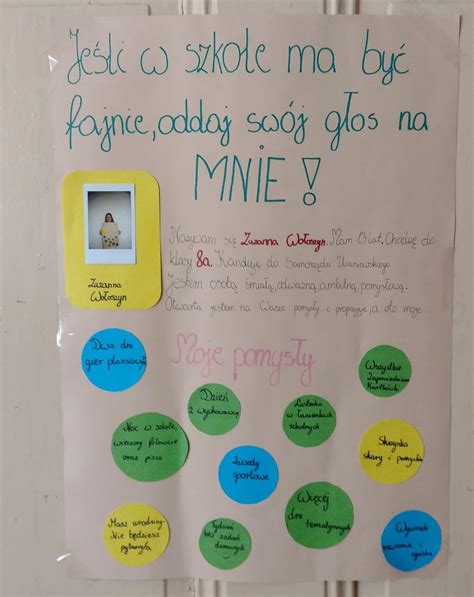 Jeśli w szkole ma być
fajnie, oddaj swój głos na
MNIE!
Zuzanna
Wołoszyn
Nazywam się Zuzanna Wołoszyn. Mam 13 lat. Chodzę do
klasy 8a. Kandyduję do Samorządu Uczniowskiego.
Jestem osobą śmiałą, odważną, ambitną, pomysłową.
Otwarta jestem na Wasze pomysły i propozycje, a do moje...
Moje pomysły
Dwa dni
gier planszowych
Dzień
z wychowawcą
Lusterka
w łazienkach
szkolnych
Wszystkie
Zapowiedziane
Kartkówki
Noc w szkole,
wieczory filmowe
oraz pizza
Zawody
sportowe
Skrzynka
skarg i pomysłów
Więcej
dni tematycznych
Masz urodziny-
Nie będziesz
pytany/a
Tydzień
bez zadań
domowych